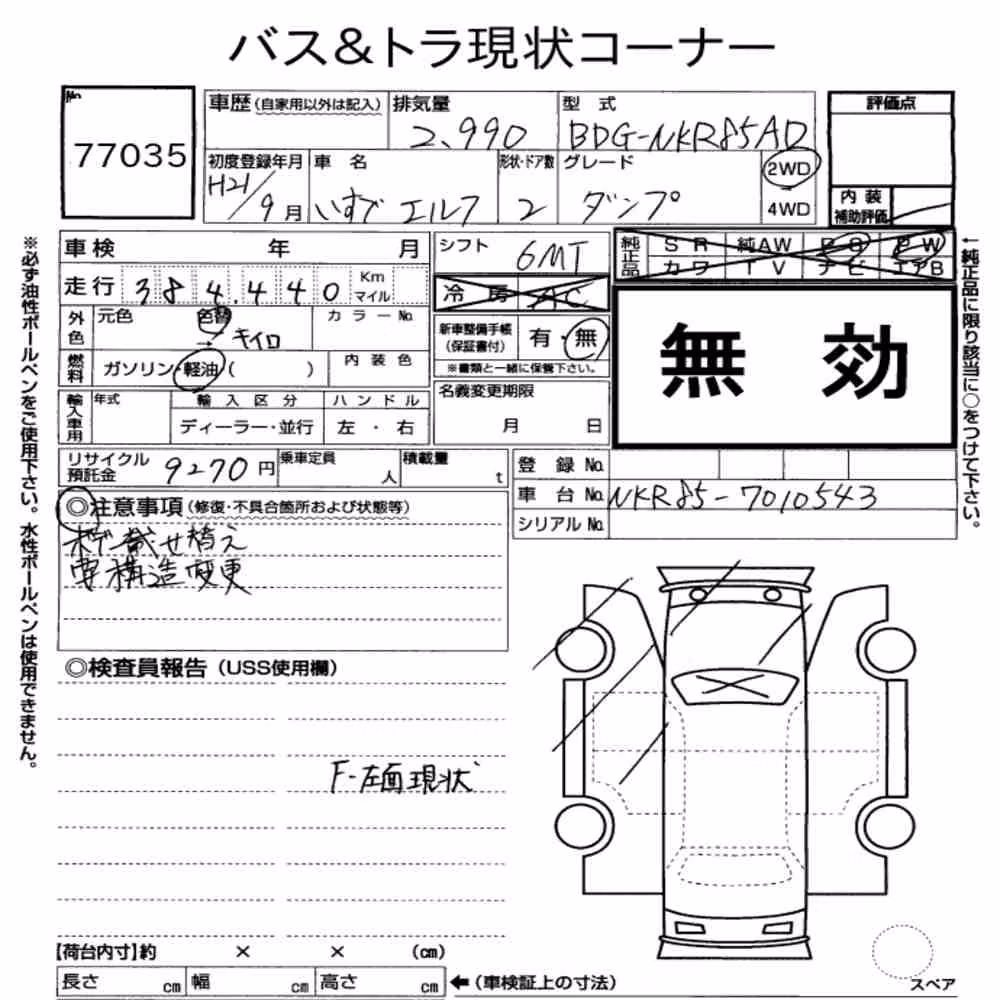 バス&トラ現状コーナー
No.
77035
車歴(自家用以外は記入)
排気量
2,990
型 式
BDG-NKR85AD
初度登録年月
H21/9月
車 名
いすゞ エルフ
形状・ドア数
2
グレード
ダンプ
2WD
4WD
評価点
内装
補助評価
車検 年 月
シフト
6MT
純正品
SR 純AW PS PW
カワ TV ナビ エアB
走行 384,440 Km
マイル
冷房 AC
外色
元色
色替
→ キイロ
カラーNo.
新車整備手帳
(保証書付)
有・無
※書類と一緒に保管下さい。
無 効
燃料
ガソリン・軽油( )
内装色
輸入車用
年式
輸入区分
ディーラー・並行
ハンドル
左・右
名義変更期限
月 日
リサイクル
預託金
9270円
乗車定員
人
積載量
t
登 録 No.
車 台 No. NKR85-7010543
シリアル No.
◎注意事項(修復・不具合箇所および状態等)
載せ替え
要構造変更
◎検査員報告(USS使用欄)
F-左面現状
【荷台内寸】約 × × (cm)
長さ cm 幅 cm 高さ cm ←(車検証上の寸法)
スペア
※必ず油性ボールペンをご使用下さい。水性ボールペンは使用できません。
←純正品に限り該当に○をつけて下さい。